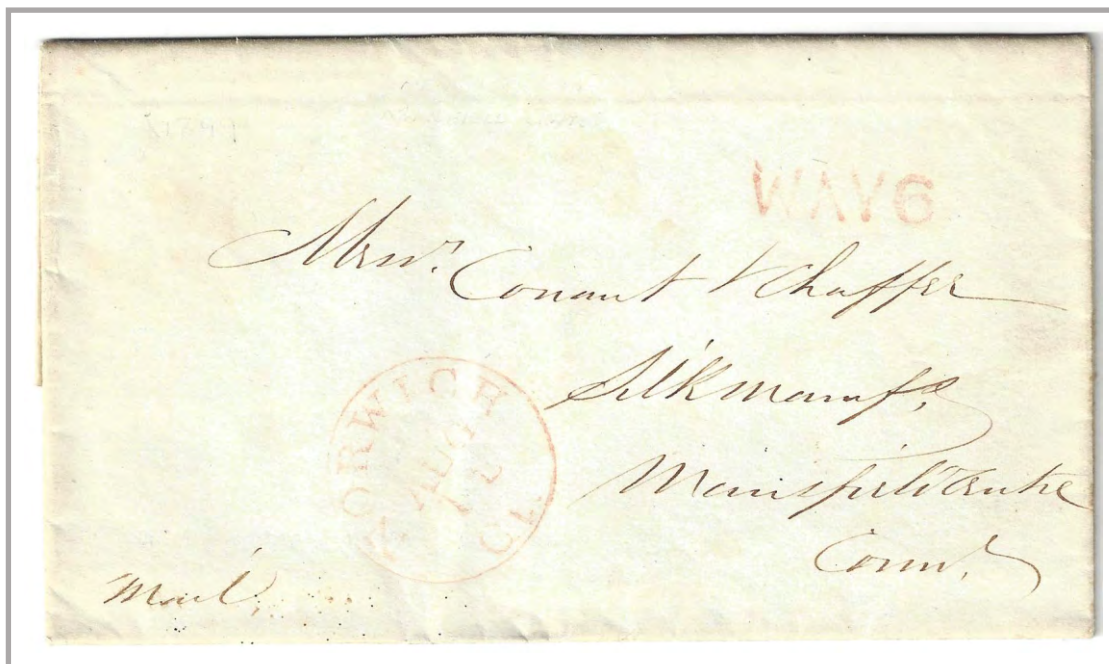 WAY 6
Messrs. Conant & Chaffee
Silk Manufs.
Mansfield Centre
Conn.
NORWICH
CT.
Mail.